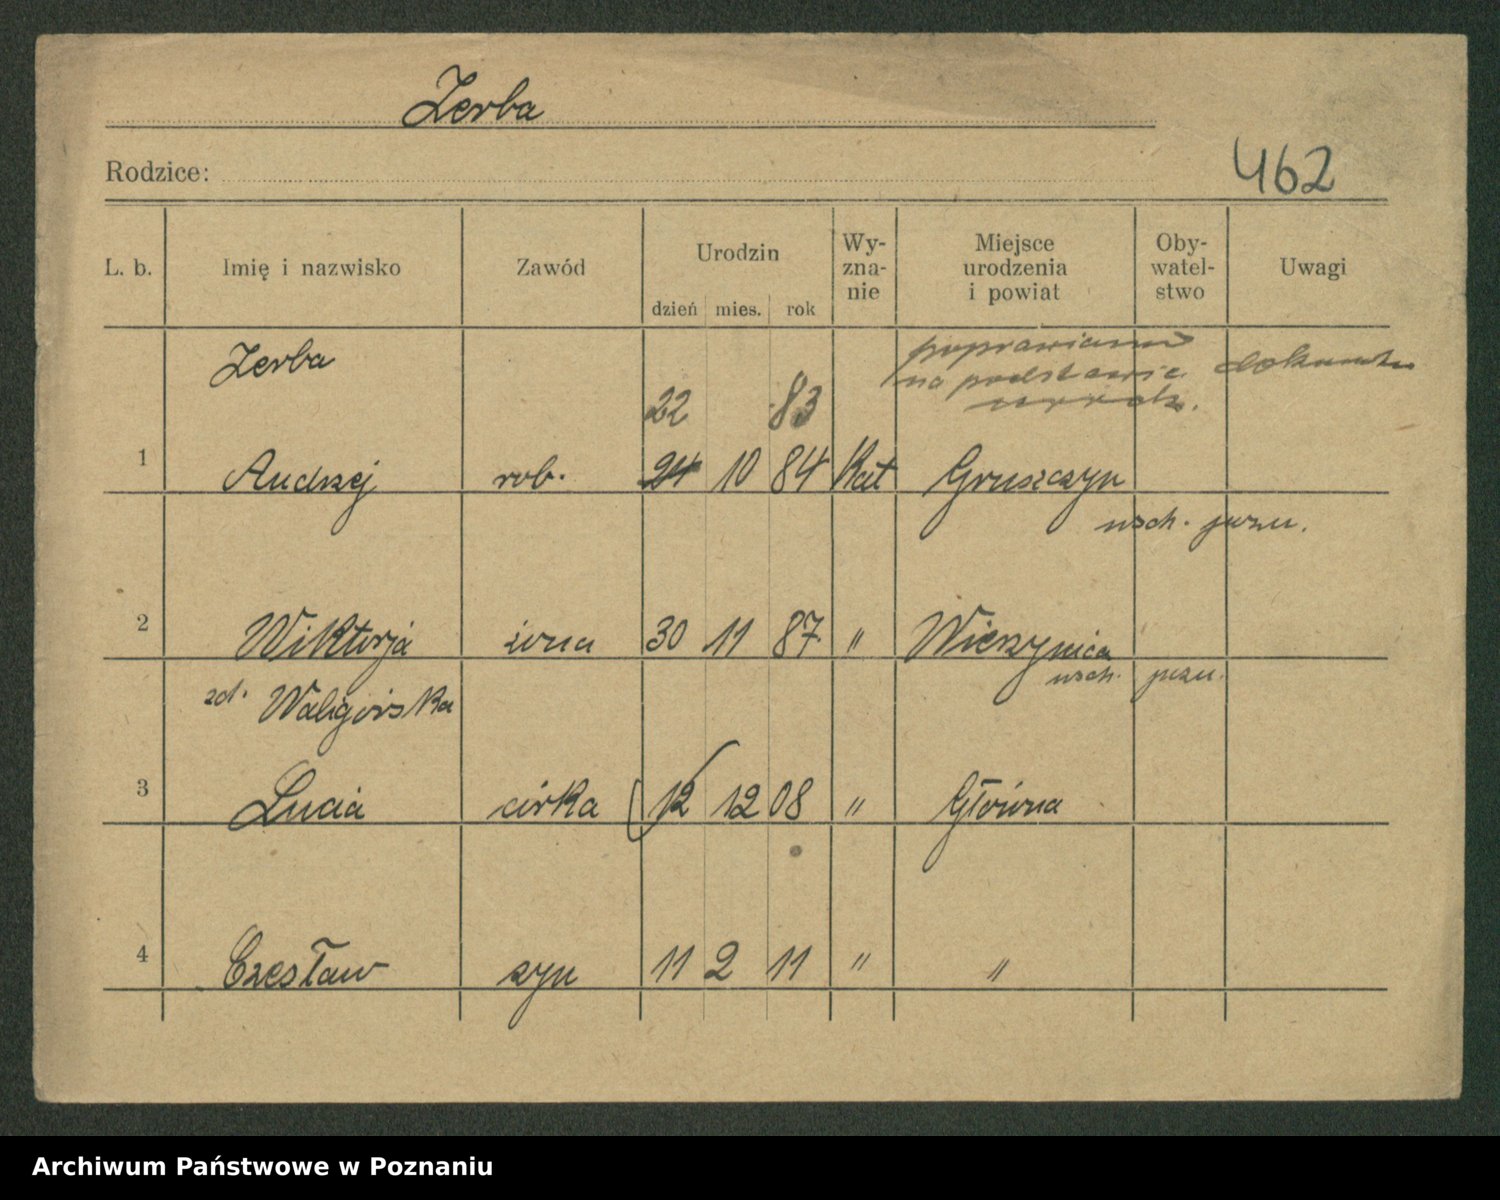 Zerba
Rodzice:
462
L. b. Imię i nazwisko Zawód Urodzin dzień mies. rok Wy-zna-nie Miejsce urodzenia i powiat Oby-watel-stwo Uwagi
Zerba
poprawiono
na podstawie dokumentu
22 83
1 Andrzej rob. 24 10 84 Kat Gruszczyn
wsch. pozn.
2 Wiktorja żona 30 11 87 " Wierzynica
wsch. pozn.
zd. Waligórska
3 Lucia córka 12 12 08 " Główna
4 Czesław syn 11 2 11 " "
Archiwum Państwowe w Poznaniu